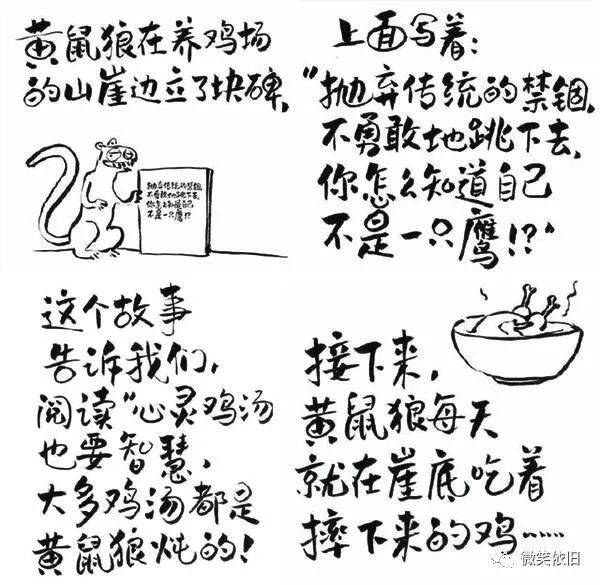 黄鼠狼在养鸡场
的山崖边立了块碑,
抛弃传统的禁锢
不勇敢地跳下去,
你怎么知道自己
不是一只鹰!?
上面写着:
"抛弃传统的禁锢,
不勇敢地跳下去,
你怎么知道自己
不是一只鹰!?"
接下来,
黄鼠狼每天
就在崖底吃着
摔下来的鸡……
这个故事
告诉我们,
阅读"心灵鸡汤
也要智慧,
大多鸡汤都是
黄鼠狼炖的!
微笑依旧